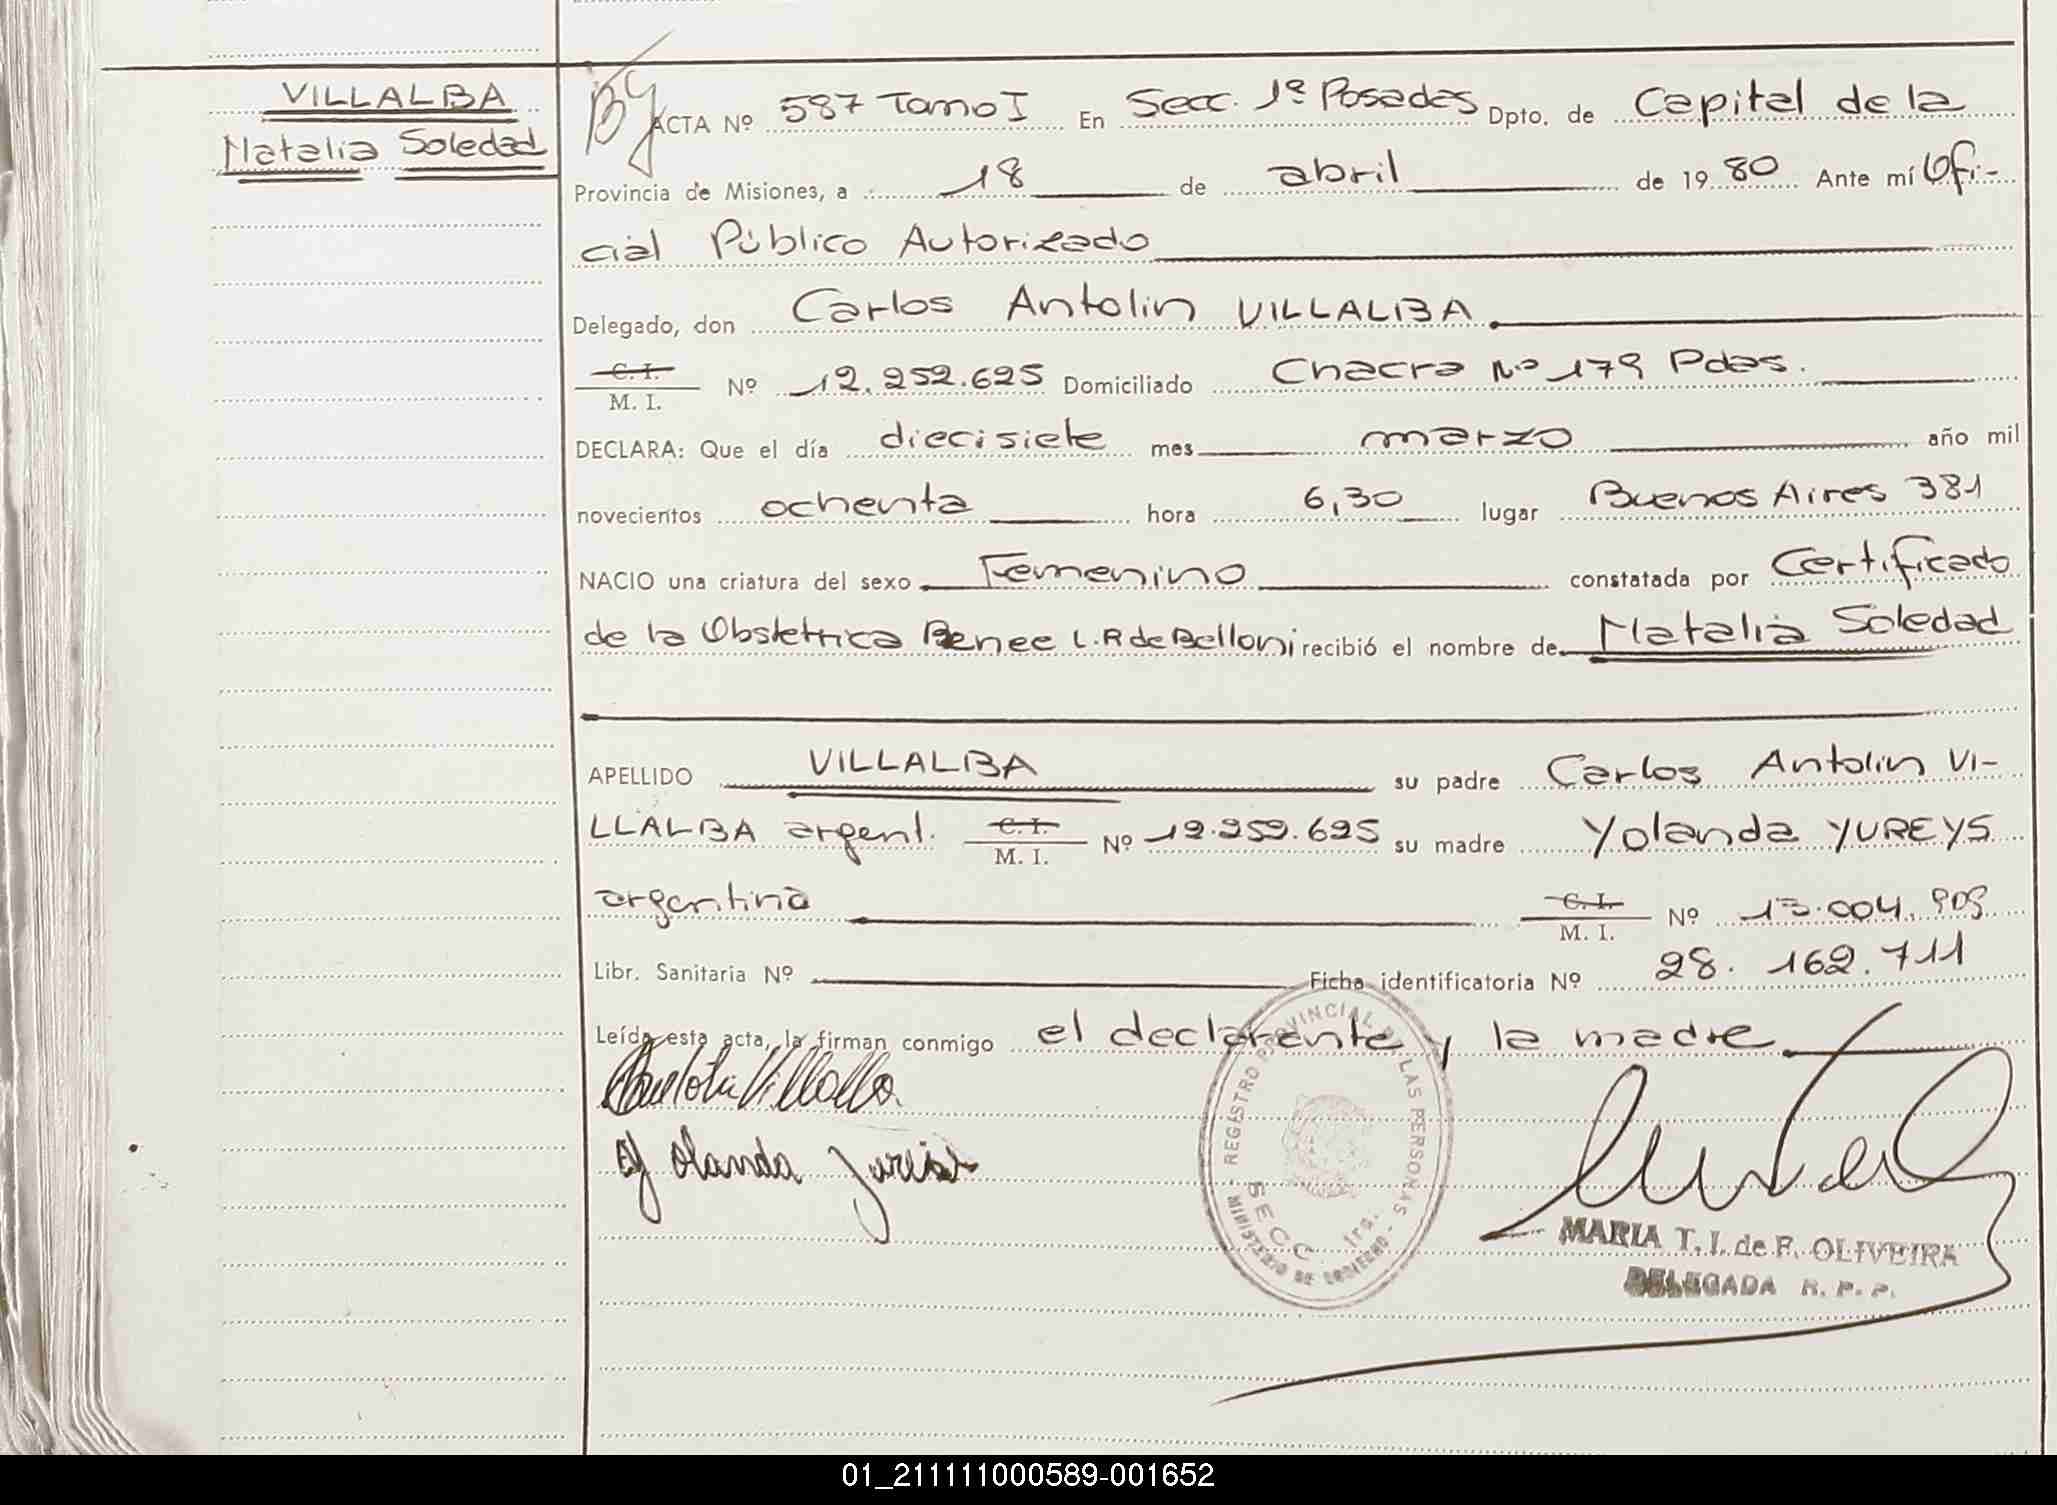 VILLALBA
Natalia Soledad
ACTA Nº 587 Tomo I En Secc. 1º Posadas Dpto. de Capital de la
Provincia de Misiones, a 18 de abril de 1980 Ante mí Ofi-
cial Público Autorizado
Delegado, don Carlos Antolin VILLALBA
C. I.
M. I. Nº 12.252.625 Domiciliado Chacra Nº 179 Pdas.
DECLARA: Que el día diecisiete mes marzo año mil
novecientos ochenta hora 6,30 lugar Buenos Aires 381
NACIO una criatura del sexo Femenino constatada por Certificado
de la Obstetrica Renee L.R de Belloni recibió el nombre de Natalia Soledad
APELLIDO VILLALBA su padre Carlos Antolin VI-
LLALBA argent. C. I.
M. I. Nº 12.252.625 su madre Yolanda YUREYS
argentina C. I.
M. I. Nº 13.004.909
Libr. Sanitaria Nº Ficha identificatoria Nº 28.162.711
Leída esta acta, la firman conmigo el declarante y la madre
Villalba
Yolanda
REGISTRO PROVINCIAL DE LAS PERSONAS
MINISTERIO DE GOBIERNO
SECC 1ra.
MARIA T. I. de F. OLIVEIRA
DELEGADA R. P. P.
01_211111000589-001652